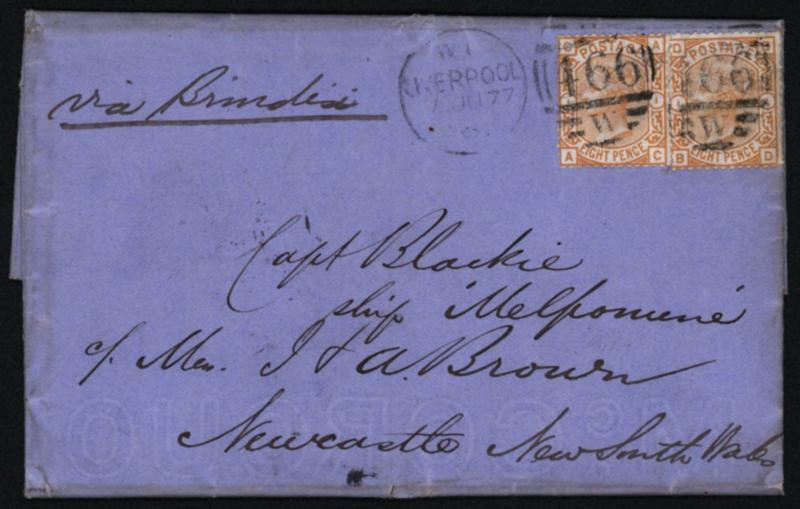 via Brindisi
W 1
LIVERPOOL
JU 77
POSTAGE
166
W
A C
EIGHT PENCE
POSTAGE
166
W
B D
EIGHT PENCE
Capt Blackie
ship 'Melpomene'
c/. Mess. J & A. Brown
Newcastle New South Wales